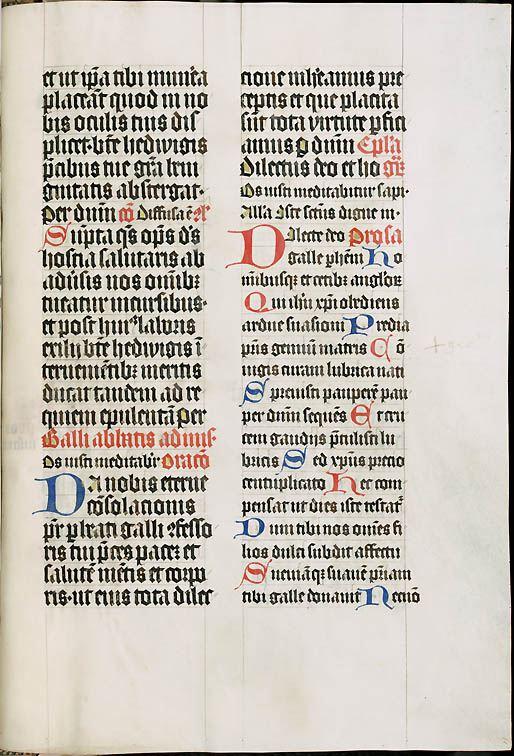 et ut ip̄a tibi mun̄a
placeāt quod in no
bis oculis tuis dis
plicet · bt̄e hedwigis
p̄cibus tue gr̄a beni
gnitatis abstergat ·
per dn̄m cō Diffusa ē gr̄
Supta q̄s op̄s d̄s
hostia salutaris ab
adūsis nos om̄ibꝫ
tueatur incursibus ·
et post huiꝰ laboris
exiliū bt̄e hedwigis ī
terueniētibꝫ meritis
ducat tandem ad re
quiem epulentā Per
Galli abbatis ad mis ·
Os iusti meditabit̄ oracō
Da nobis eterne
cōsolacionis
pr̄ p̄ beati galli ꝯfesso
ris tui p̄ces pacez et
salutē mētis et corpo
ris · ut eius tota dilec
cione inhēamus pre
ceptis et que placita
sūt tota virtute p̄fici
amus p dn̄m Ep̄la
Dilectus deo et ho gr̄
Os iusti meditabitur sapi ·
Alla Iste sctūs digne in ·
Dilecte deo Prosa
galle phēni Ho
minibusqꝫ et cetibꝫ anglorꝝ
Qui ih̄u xp̄i obediens
ardue suasioni Predia
pr̄is gemiū matris Cō
iugis curam ludicra nati
Sprenisti pauperē pau
per dn̄m sequēs Et cru
cem gaudijs p̄tulisti lu
bricis Sed xp̄us precio
centuplicato Hec com
pensat ut dies iste testat̄
Dum tibi nos om̄es fi
lios dulci subdit affectu
Sueuiāqꝫ suauē pr̄iam
tibi galle donauit Necnō